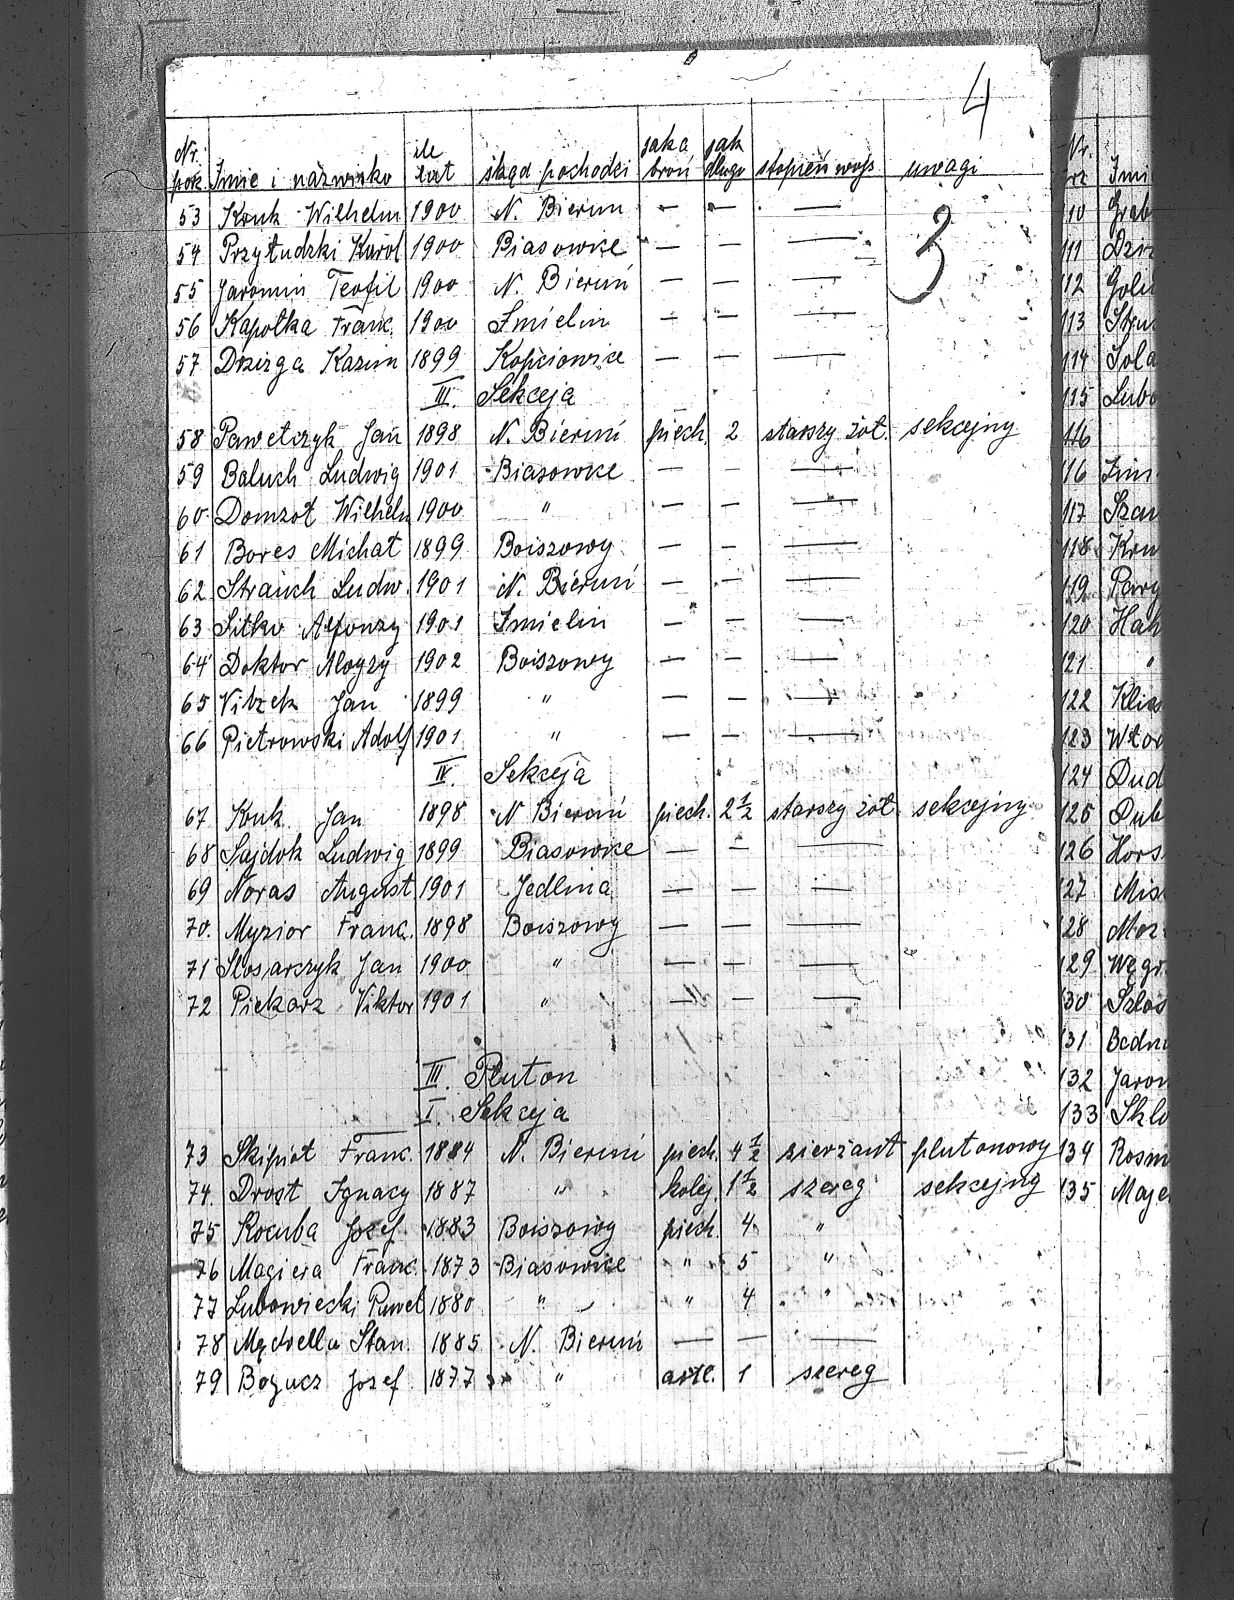 4
Nr. porz. Imie i nazwisko ile lat skąd pochodzi jaka broń jak długo stopień wojs uwagi
3
53 Kruk Wilhelm 1900 N. Bieruń — — —
54 Przyłudzki Karol 1900 Biasowice — — —
55 Jaromin Teofil 1900 N. Bieruń — — —
56 Kapołka Franc. 1900 Imielin — — —
57 Drzizga Kazim 1899 Kopciowice — — —
III. Sekceja
58 Pawełczyk Jan 1898 N. Bieruń piech. 2 starszy żoł. sekcejny
59 Baluch Ludwig 1901 Biasowice — — —
60 Domzoł Wilhelm 1900 " — — —
61 Bores Michał 1899 Boiszowy — — —
62 Strauch Ludw. 1901 N. Bieruń — — —
63 Sitko Alfonzy 1901 Imielin — — —
64 Doktor Aloyzy 1902 Boiszowy — — —
65 Vitzek Jan 1899 " — — —
66 Pietrowski Adolf 1901 " — — —
IV. Sekceja
67 Kruk Jan 1898 N Bieruń piech. 2 1/2 starszy żoł. sekcejny
68 Sajdok Ludwig 1899 Biasowice — — —
69 Noras August 1901 Jedlina — — —
70. Myzior Franc. 1898 Boiszowy — — —
71 Slosarczyk Jan 1900 " — — —
72 Piekarz Viktor 1901 " — — —
III. Pluton
I. Sekceja
73 Skipioł Franc. 1884 N. Bieruń piech. 4 1/2 sierżant plutonowy
74. Drost Ignacy 1887 " kolej. 1 1/2 szereg sekcejny
75 Kocuba Josef 1883 Boiszowy piech. 4 "
76 Magiera Franc. 1873 Biasowice " 5 "
77 Lubowiecki Paweł 1880 " " 4 "
78 Mędrella Stan. 1885 N. Bieruń — — —
79 Bogucz Josef 1877 " artl. 1 szereg
Nr.
Imi
110 Grab
111 Dziz
112
113
114 Sola
115 Lubo
116
116
117
118
119
120
121 "
122
123
124 Dud
125 Dub
126 Hors
127
128
129 Węgr
130
131 Bedn
132 Jarom
133
134 Rosm
135 Maje